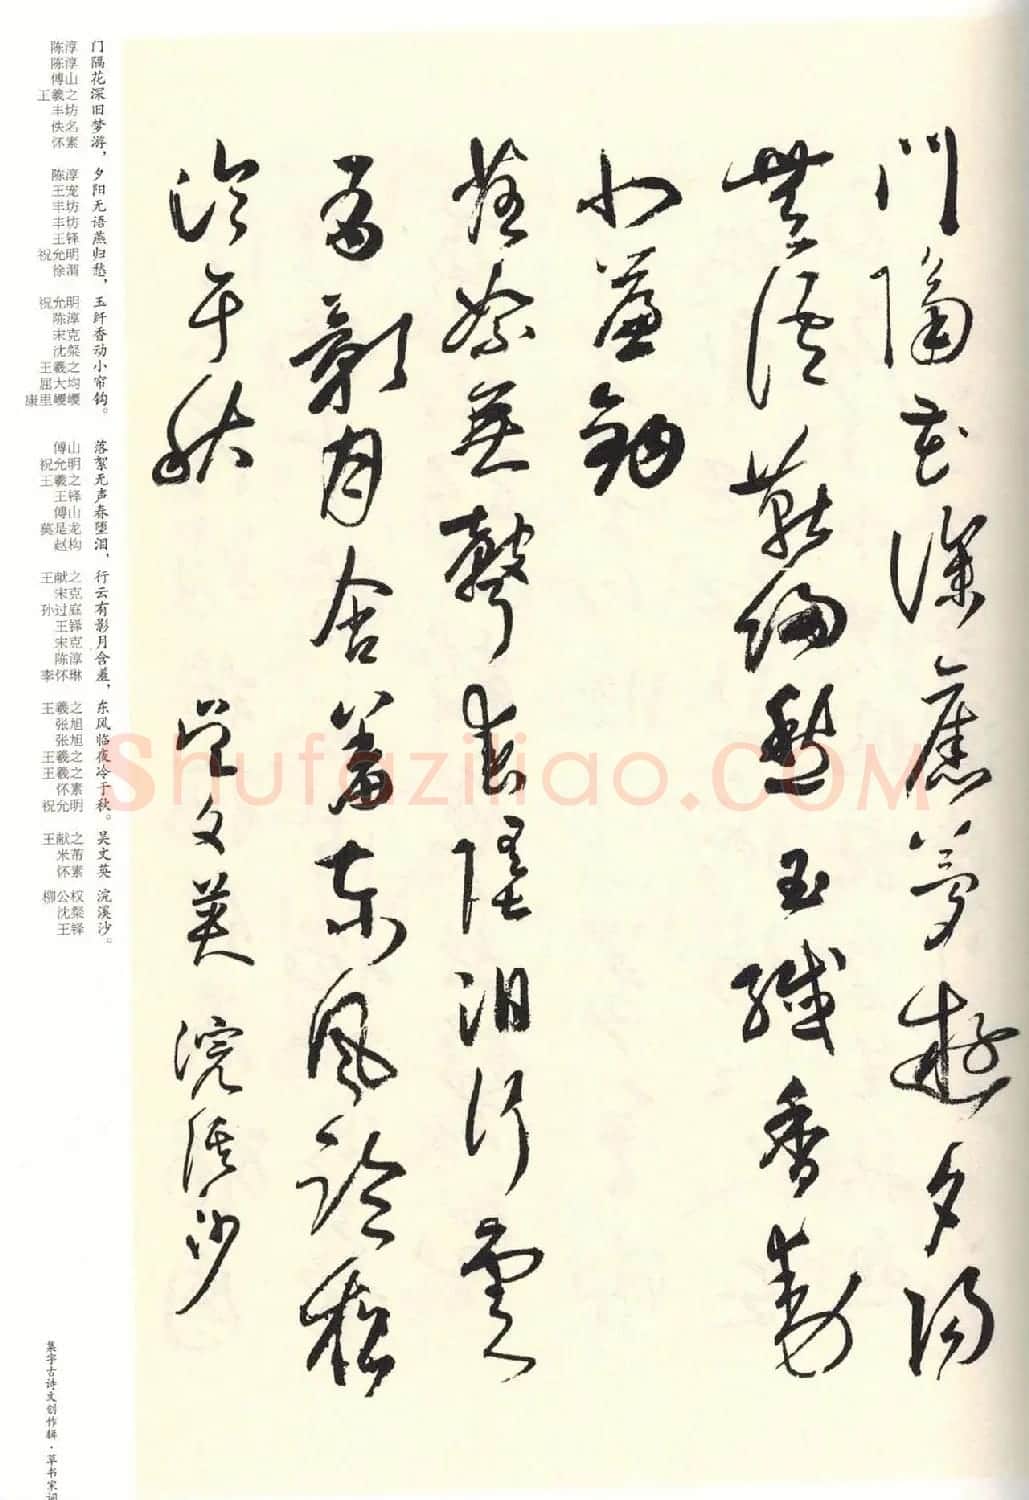 門隔花深舊夢遊夕陽
無語燕歸愁玉纖香動
小簾鉤
落絮無聲春墮淚行雲
有影月含羞東風臨夜
冷于秋 吳文英 浣溪沙
门隔花深旧梦游，
陈淳
陈淳
傅山
王羲之
丰坊
佚名
怀素
夕阳无语燕归愁，
陈淳
王宠
丰坊
丰坊
王铎
祝允明
徐渭
玉纤香动小帘钩。
祝允明
陈淳
宋克
沈粲
王羲之
屈大均
康里巎巎
落絮无声春堕泪，
傅山
祝允明
王羲之
王铎
傅山
莫是龙
赵构
行云有影月含羞，
王献之
宋克
孙过庭
王铎
宋克
陈淳
李怀琳
东风临夜冷于秋。
王羲之
张旭
张旭
王羲之
王羲之
怀素
祝允明
吴文英
王献之
米芾
怀素
浣溪沙。
柳公权
沈粲
王铎
集字古诗文创作辑·草书宋词
Shufaziliao.COM